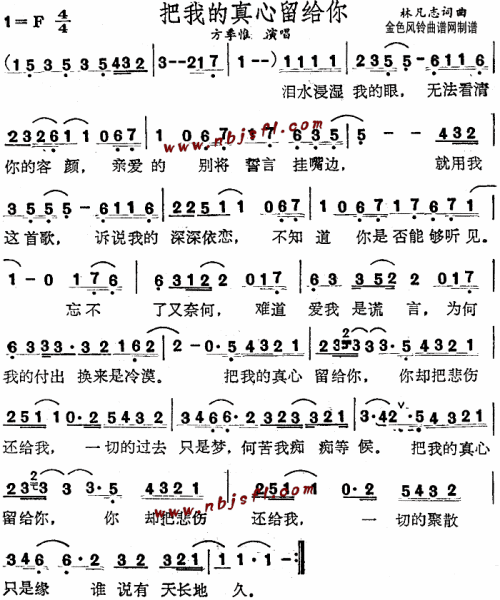 把我的真心留给你
1=F 4/4
方季惟 演唱
林凡志词曲
金色风铃曲谱网制谱
(1535 35432 | 3--217 | 1--) 1111 | 2355-6116 |
泪水浸湿 我的眼， 无法看清
232611 067 | 1 067 17635 | 5--432 |
www.nbjsfl.com
你的容 颜， 亲爱的 别将 誓言 挂嘴边， 就用我
3555-6116 | 22511 067 | 1067167176 |
这首歌， 诉说我的 深深依恋， 不知 道 你是否能够听见。
1-0 176 | 63122 017 | 63 352 2 017 |
忘不 了又奈何， 难道 爱我 是谎 言， 为何
6 333·32 162 | 2-0·54321 | 323333·54321 |
我的付出 换来是冷漠。 把我的真心 留给你， 你却把悲伤
2511 10·25432 | 3466·2323 321 | 3·42·54321 |
还给我， 一切的过去 只是梦，何苦我痴 痴等 候。 把我的真心
2323 3 3·5 4321 | 2511 1 10·2 5432 |
www.nbjsfl.com
留给你， 你 却把悲伤 还给我， 一 切的聚散
346 6·2 32 321 | 1 1·1-:||
只是缘 谁 说有 天长地 久。